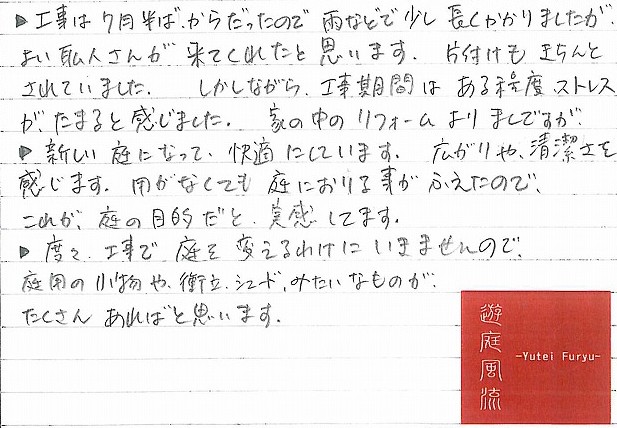 ▶工事は7月半ばからだったので雨などで少し長くかかりましたが、
よい職人さんが来てくれたと思います。片付けもきちんと
されていました。しかしながら、工事期間はある程度ストレス
が、たまると感じました。家の中のリフォームよりましですが。
▶新しい庭になって、快適にしています。広がりや、清潔さを
感じます。用がなくても庭におりる事がふえたので、
これが、庭の目的だと、実感してます。
▶度々、工事で庭を変えるわけにいきませんので、
庭用の小物や、衝立、シェード、みたいなものが、
たくさんあればと思います。
遊庭風流
-Yutei Furyu-